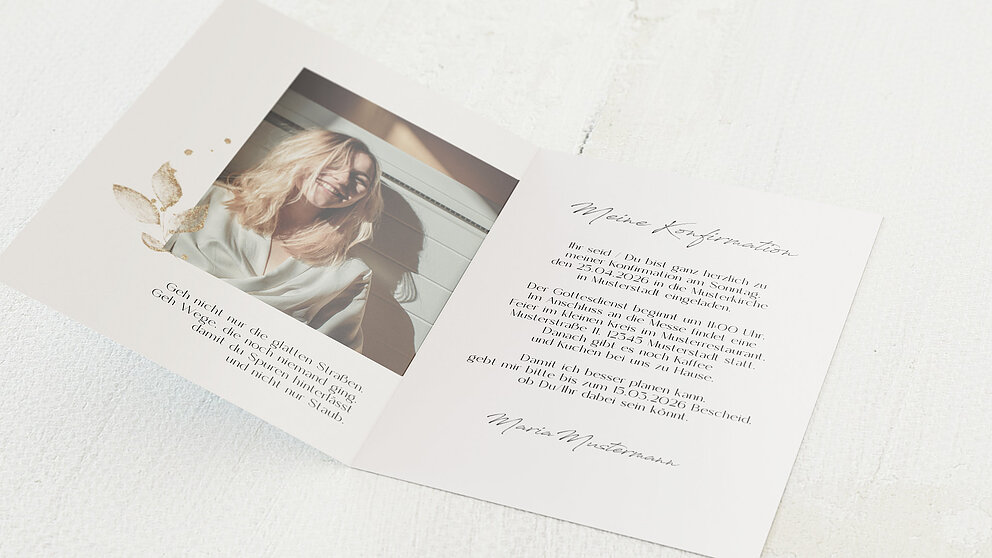 Geh nicht nur die glatten Straßen.
Geh Wege, die noch niemand ging,
damit du Spuren hinterlässt
und nicht nur Staub.
Meine Konfirmation
Ihr seid / Du bist ganz herzlich zu
meiner Konfirmation am Sonntag,
den 25.04.2026 in die Musterkirche
in Musterstadt eingeladen.
Der Gottesdienst beginnt um 11:00 Uhr.
Im Anschluss an die Messe findet eine
Feier im kleinen Kreis im Musterrestaurant,
Musterstraße 11, 12345 Musterstadt statt.
Danach gibt es noch Kaffee
und Kuchen bei uns zu Hause.
Damit ich besser planen kann,
gebt mir bitte bis zum 15.03.2026 Bescheid,
ob Du/Ihr dabei sein könnt.
Maria Mustermann